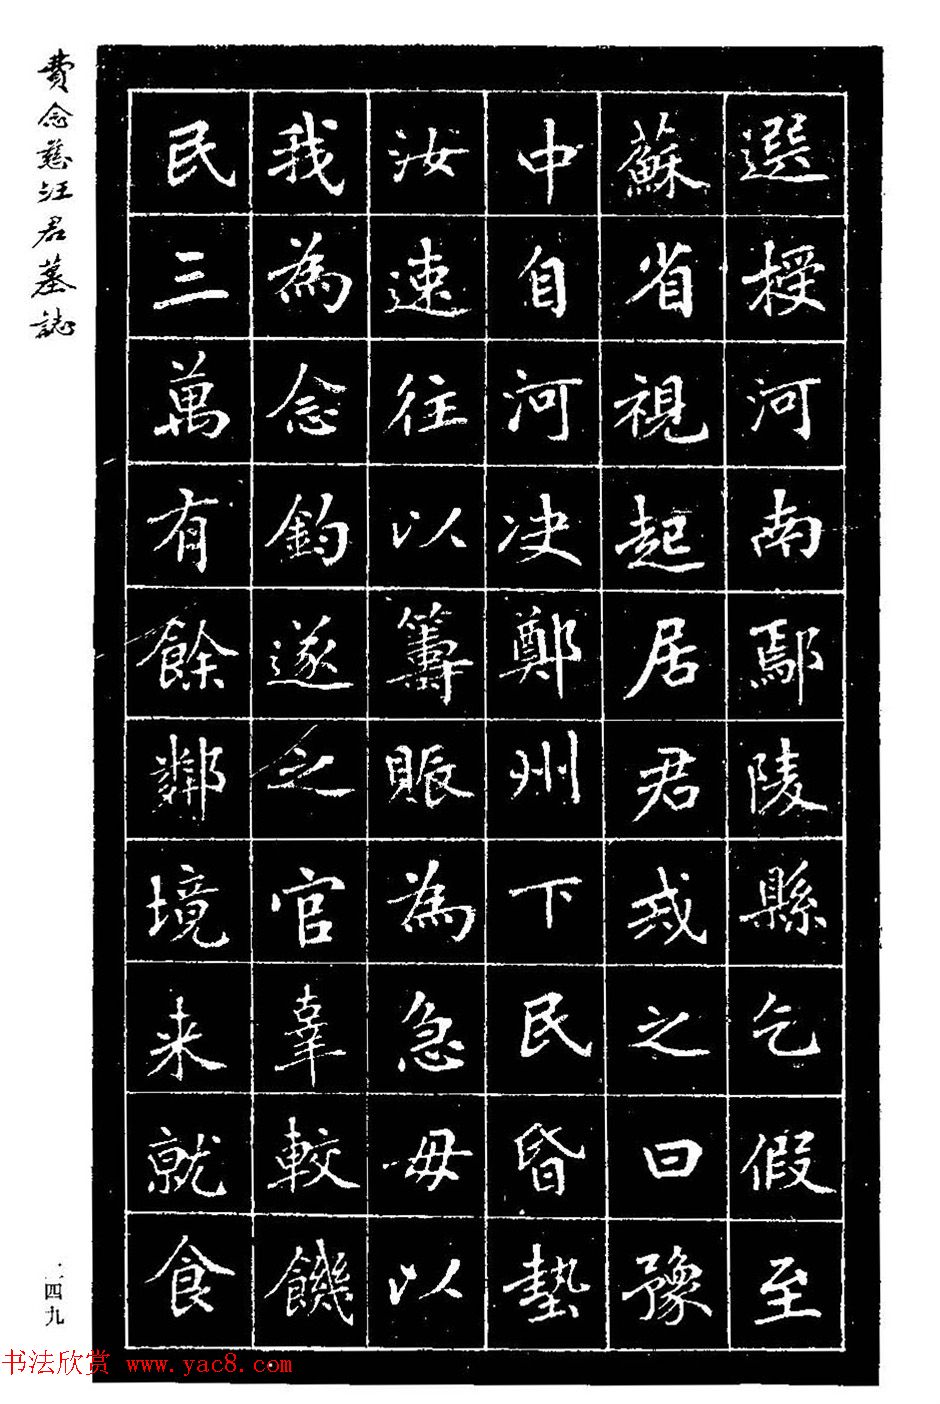 選授河南鄢陵縣乞假至
蘇省視起居君戒之曰豫
中自河决鄭州下民昏墊
汝速往以籌賑為急毋以
我為念鈞遂之官辜較饑
民三萬有餘鄰境来就食
費念慈汪君墓誌
一四九
书法欣赏 www.yac8.com